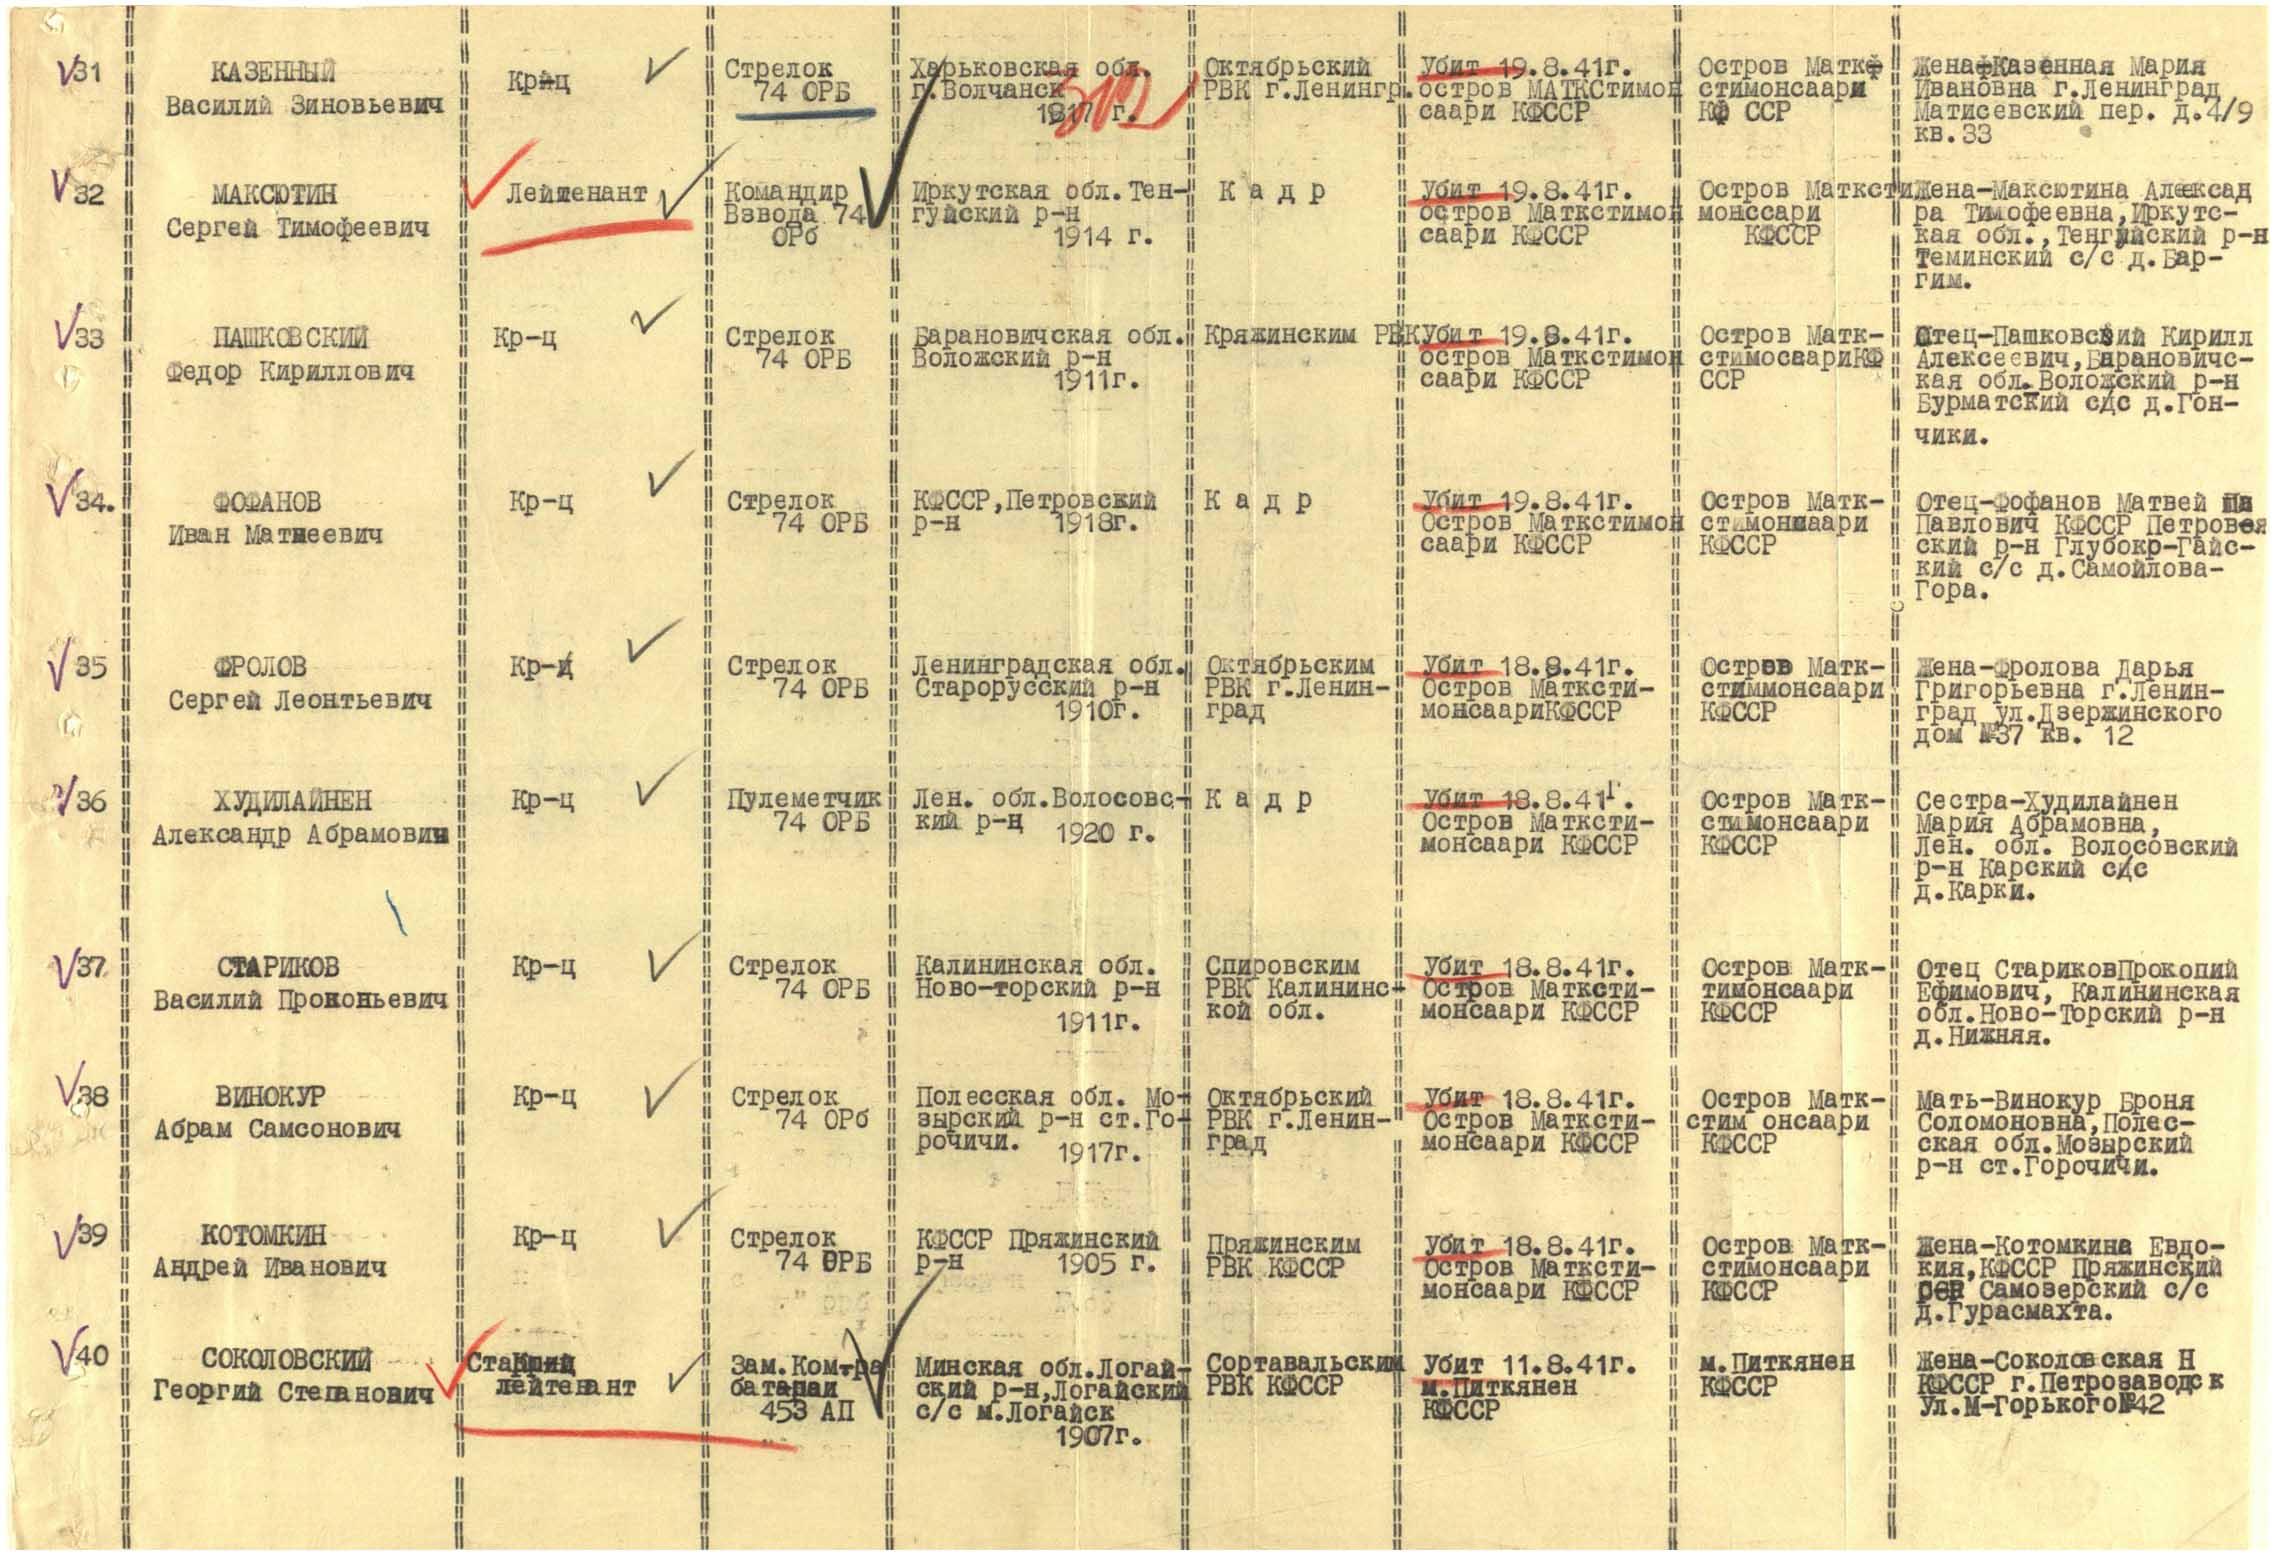 31
КАЗЕННЫЙ
Василий Зиновьевич
Кр-ц
Стрелок
74 ОРБ
Харьковская обл.
г.Волчанск
1917 г.
Октябрьский
РВК г.Ленингр.
Убит 19.8.41г.
остров МАТКСтимон
саари КФССР
Остров Матк
стимонсаари
КФ ССР
Жена Казенная Мария
Ивановна г.Ленинград
Матисевский пер. д.4/9
кв.33
32
МАКСЮТИН
Сергей Тимофеевич
Лейтенант
Командир
Взвода 74
ОРб
Иркутская обл.Тен-
гуйский р-н
1914 г.
К а д р
Убит 19.8.41г.
остров Маткстимон
саари КФССР
Остров Мاтксти
монссари
КФССР
Жена-Максютина Алексад
ра Тимофеевна,Иркутс-
кая обл.,Тенгуйский р-н
Теминский с/с д.Бар-
гим.
33
ПАШКОВСКИЙ
Федор Кириллович
Кр-ц
Стрелок
74 ОРБ
Барановичская обл.
Воложский р-н
1911г.
Кряжинским РВК
Убит 19.8.41г.
остров Маткстимон
саари КФССР
Остров Матк-
стимосаариКФ
ССР
Отец-Пашковский Кирилл
Алексеевич,Барановичс-
кая обл.Воложский р-н
Бурматский с/с д.Гон-
чики.
34.
ФОФАНОВ
Иван Матвеевич
Кр-ц
Стрелок
74 ОРБ
КФССР,Петровский
р-н 1918г.
К а д р
Убит 19.8.41г.
Остров Маткстимон
саари КФССР
Остров Матк-
стимонсаари
КФССР
Отец-Фофанов Матвей
Павлович КФССР Петров
ский р-н Глубокр-Гайс-
кий с/с д.Самойлова-
Гора.
35
ФРОЛОВ
Сергей Леонтьевич
Кр-ц
Стрелок
74 ОРБ
Ленинградская обл.
Старорусский р-н
1910г.
Октябрьским
РВК г.Ленин-
град
Убит 18.8.41г.
Остров Матксти-
монсаариКФССР
Остров Матк-
стиммонсаари
КФССР
Жена-Фролова Дарья
Григорьевна г.Ленин-
град ул.Дзержинского
дом №37 кв. 12
36
ХУДИЛАЙНЕН
Александр Абрамович
Кр-ц
Пулеметчик
74 ОРБ
Лен. обл.Волосовс-
кий р-н
1920 г.
К а д р
Убит 18.8.41г.
Остров Матксти-
монсаари КФССР
Остров Матк-
стимонсаари
КФССР
Сестра-Худилайнен
Мария Абрамовна,
Лен. обл. Волосовский
р-н Карский с/с
д.Карки.
37
СТАРИКОВ
Василий Проконьевич
Кр-ц
Стрелок
74 ОРБ
Калининская обл.
Ново-торский р-н
1911г.
Спировским
РВК Калининс-
кой обл.
Убит 18.8.41г.
Остров Матксти-
монсаари КФССР
Остров Матк-
тимонсаари
КФССР
Отец СтариковПрокопий
Ефимович, Калининская
обл.Ново-Торский р-н
д.Нижняя.
38
ВИНОКУР
Абрам Самсонович
Кр-ц
Стрелок
74 ОРб
Полесская обл. Мо-
зырский р-н ст.Го-
рочичи.
1917г.
Октябрьский
РВК г.Ленин-
град
Убит 18.8.41г.
Остров Матксти-
монсаари КФССР
Остров Матк-
стим онсаари
КФССР
Мать-Винокур Броня
Соломоновна,Полес-
ская обл.Мозырский
р-н ст.Горочичи.
39
КОТОМКИН
Андрей Иванович
Кр-ц
Стрелок
74 ОРБ
КФССР Пряжинский
р-н 1905 г.
Пряжинским
РВК КФССР
Убит 18.8.41г.
Остров Матксти-
монсаари КФССР
Остров Матк-
стимонсаари
КФССР
Жена-Котомкина Евдо-
кия,КФССР Пряжинский
Самозерский с/с
д.Гурасмахта.
40
СОКОЛОВСКИЙ
Георгий Степанович
Старший
лейтенант
Зам.Ком-ра
батареи
453 АП
Минская обл.Логай-
ский р-н,Логайский
с/с м.Логайск
1907г.
Сортавальским
РВК КФССР
Убит 11.8.41г.
м.Питкянен
КФССР
м.Питкянен
КФССР
Жена-Соколовская Н
КФССР г.Петрозаводск
Ул.М-Горького№42